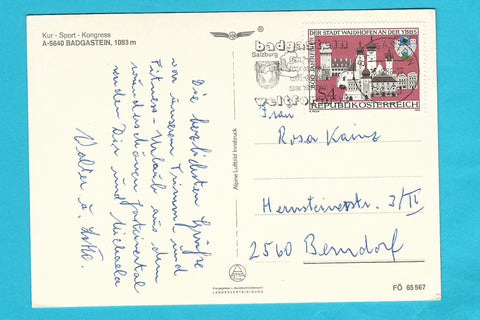 Kur - Sport - Kongress
A-5640 BADGASTEIN, 1083 m
Die herzlichsten Grüße
von unserem Trimm- und
Fitness-Urlaub aus dem
wunderschönen Gasteinertal
senden Dir und Michaela
Walter u.
Alpine Luftbild Innsbruck
badgastein
Salzburg
DER STADT WAIDHOFEN AN DER YBBS
S4
REPUBLIK ÖSTERREICH
Frau
Rosa Kainz
Hernsteinerstr. 3/II
2560 Berndorf
FÖ 65 567